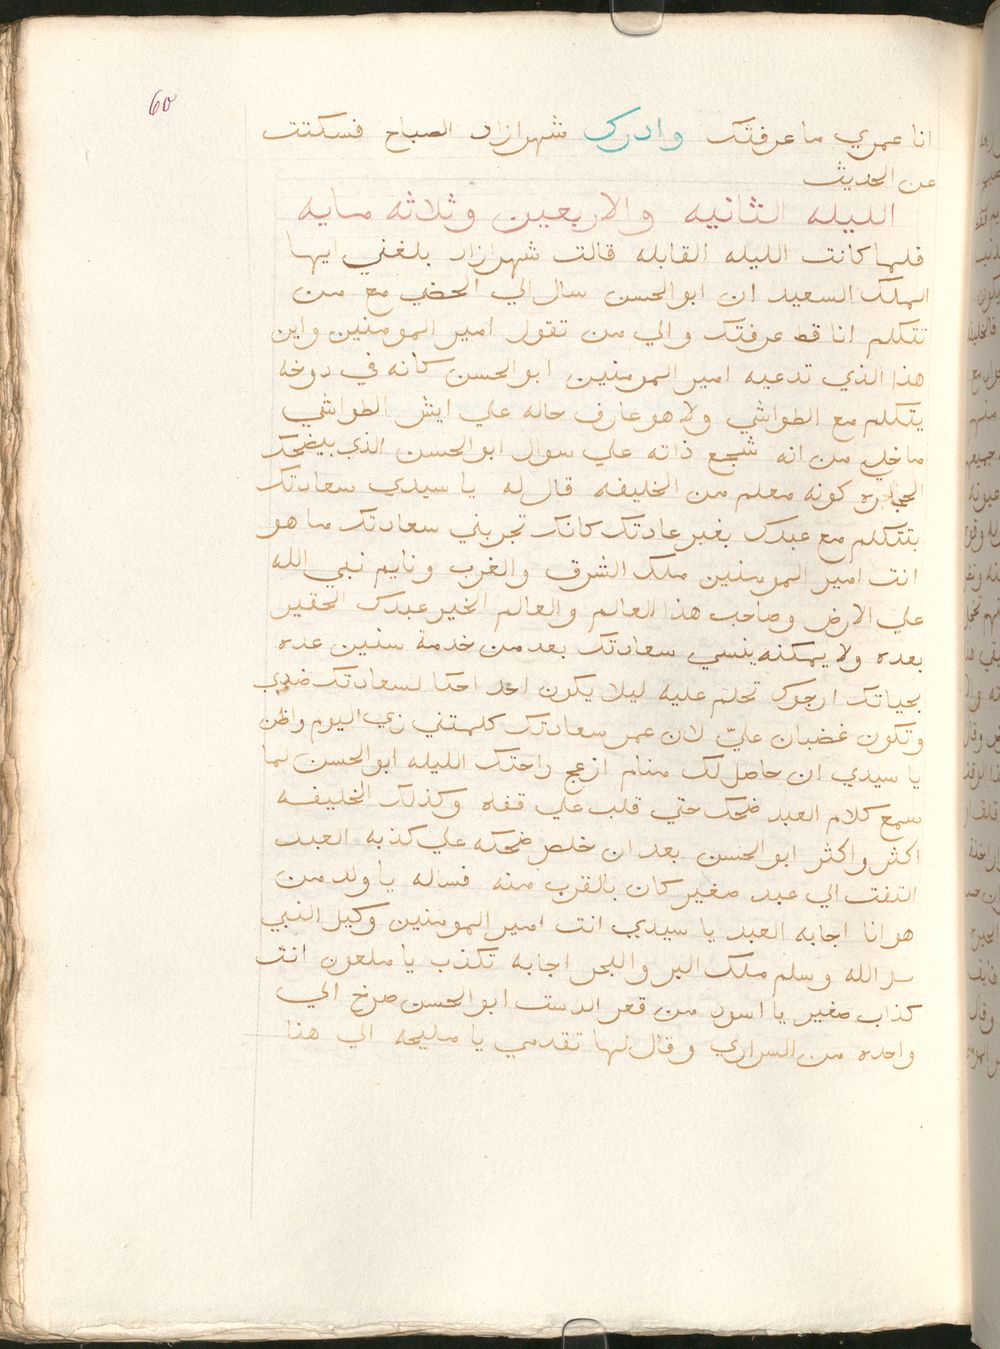 60
انا عمري ما عرفتك وادرك شهرازاد الصباح فسكتت
عن الحديث
الليله الثانيه والاربعين وثلاثه مايه
فلما كانت الليله القابله قالت شهرازاد بلغني ايها
الملك السعيد ان ابو الحسن سال الي الخصي مع من
تتكلم انا قط عرفتك والي من تقول امير المومنين واين
هذا الذي تدعيه امير المومنين ابو الحسن كانه في دوخه
يتكلم مع الطواشي ولا هو عارف حاله علي ايش الطواشي
ما خلي من انه شجع ذاته علي سوال ابو الحسن الذي بيضحك
الحجاره كونه معلم من الخليفه قال له يا سيدي سعادتك
بتتكلم مع عبدك بغير عادتك كانك تجربني سعادتك ما هو
انت امير المومنين ملك الشرق والغرب ونايم نبي الله
علي الارض وصاحب هذا العالم والعالم الخير عبدك الحقير
بعده ولا يمكنه ينسي سعادتك بعد من خدمة سنين عده
بحياتك ارجوك تحلم عليه ليلا يكون احد احكا لسعادتك ضدي
وتكون غضبان عليّ لان عمر سعادتك كلمتني زي اليوم واظن
يا سيدي ان حاصل لك منام ازعج راحتك الليله ابو الحسن لما
سمع كلام العبد ضحك حتي قلب علي قفاه وكذلك الخليفه
اكثر واكثر ابو الحسن بعد ان خلص ضحكه علي كذبه العبد
التفت الي عبد صغير كان بالقرب منه فساله يا ولد من
هو انا اجابه العبد يا سيدي انت امير المومنين وكيل النبي
الله وسلم ملك البر والبحر اجابه تكذب يا ملعون انت
كذاب صغير يا اسود من قعر الدست ابو الحسن صرخ الي
واحده من السراري وقال لها تقدمي يا مليحه الي هنا